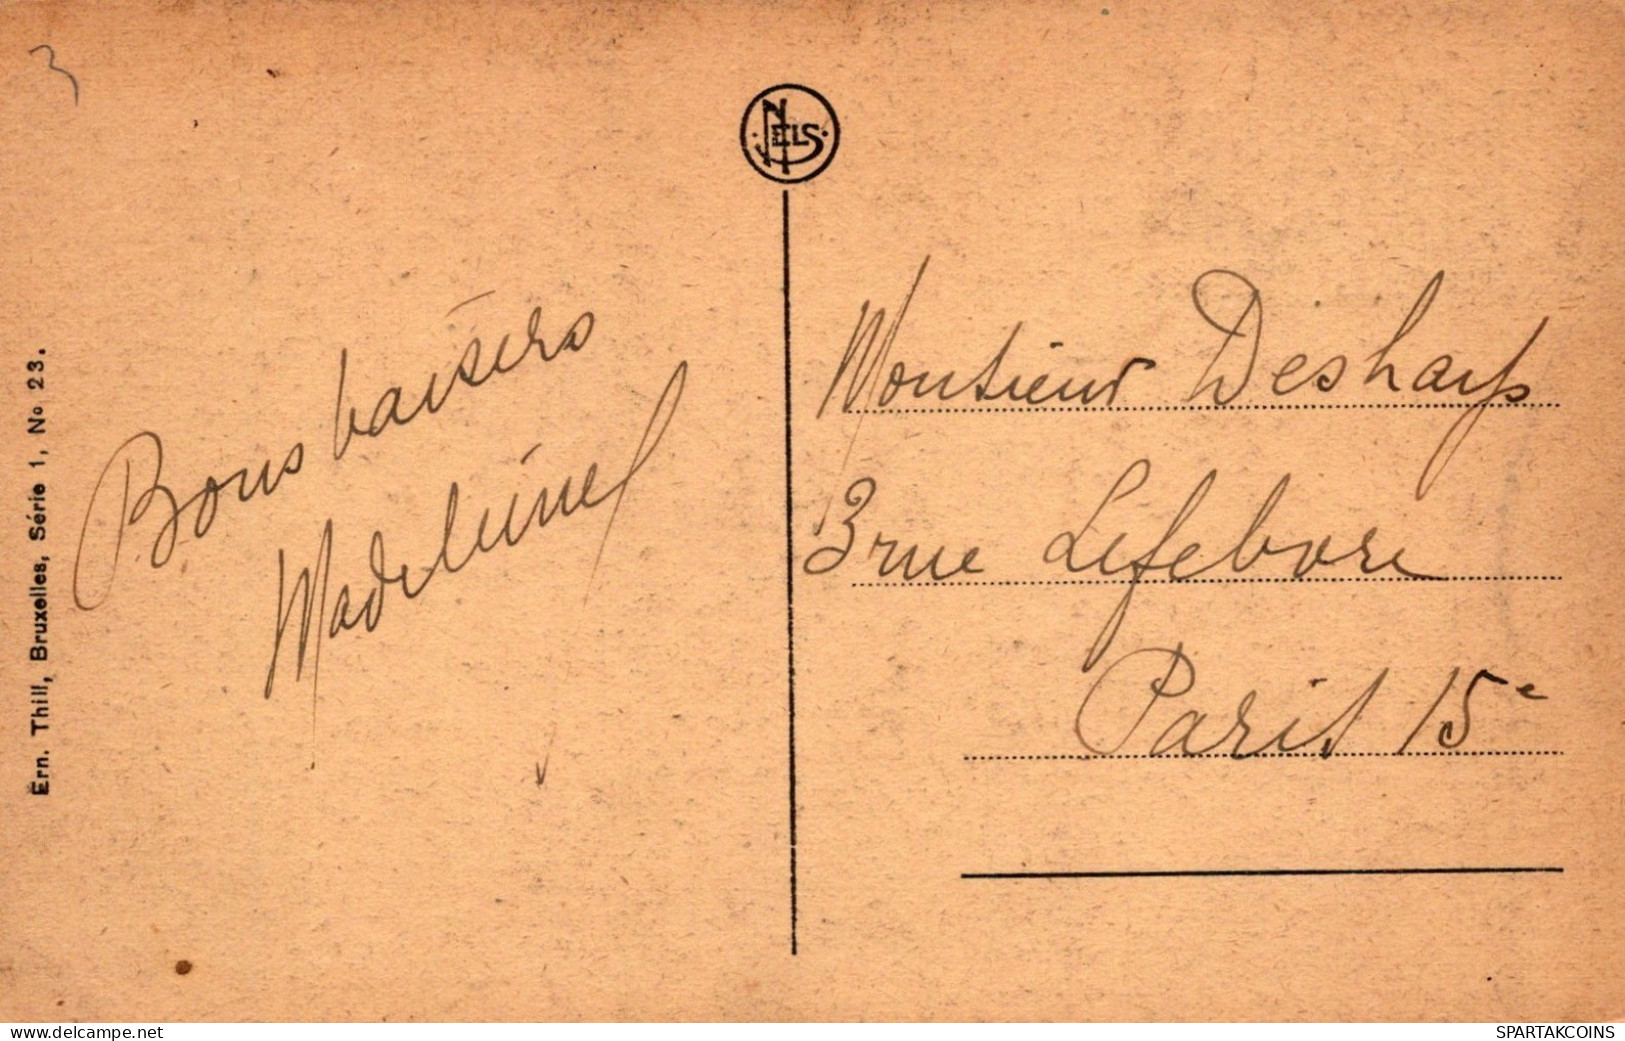 3
NELS
Ern. Thill, Bruxelles, Série 1, No 23.
Bons baisers
Madeleine
Monsieur Deshays
3 rue Lefebvre
Paris 15e
www.delcampe.net
SPARTAKCOINS